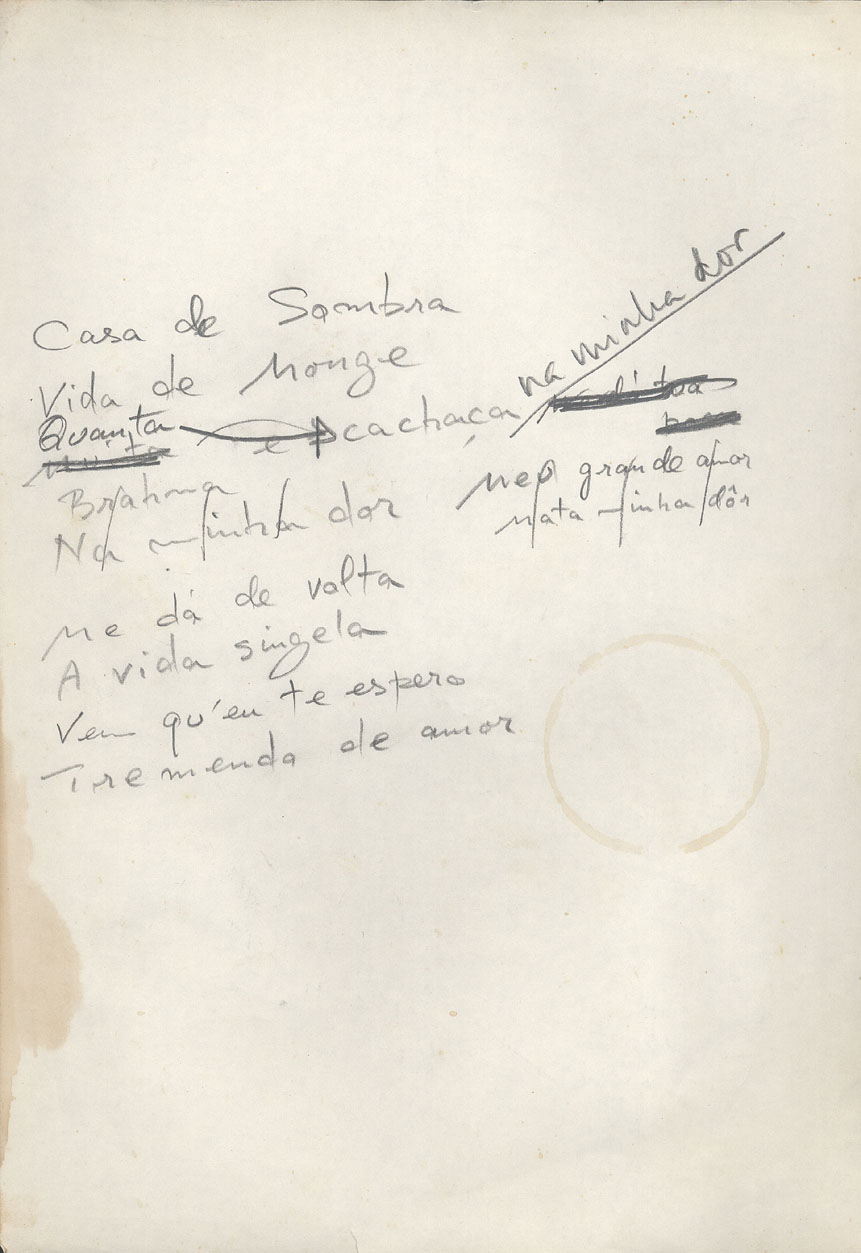 Casa de Sombra
Vida de Monge
Quanta e cachaça na minha dor
Brahma
Na minha dor
Meu grande amor
Mata minha dôr
Me dá de volta
A vida singela
Vem qu'eu te espero
Tremendo de amor